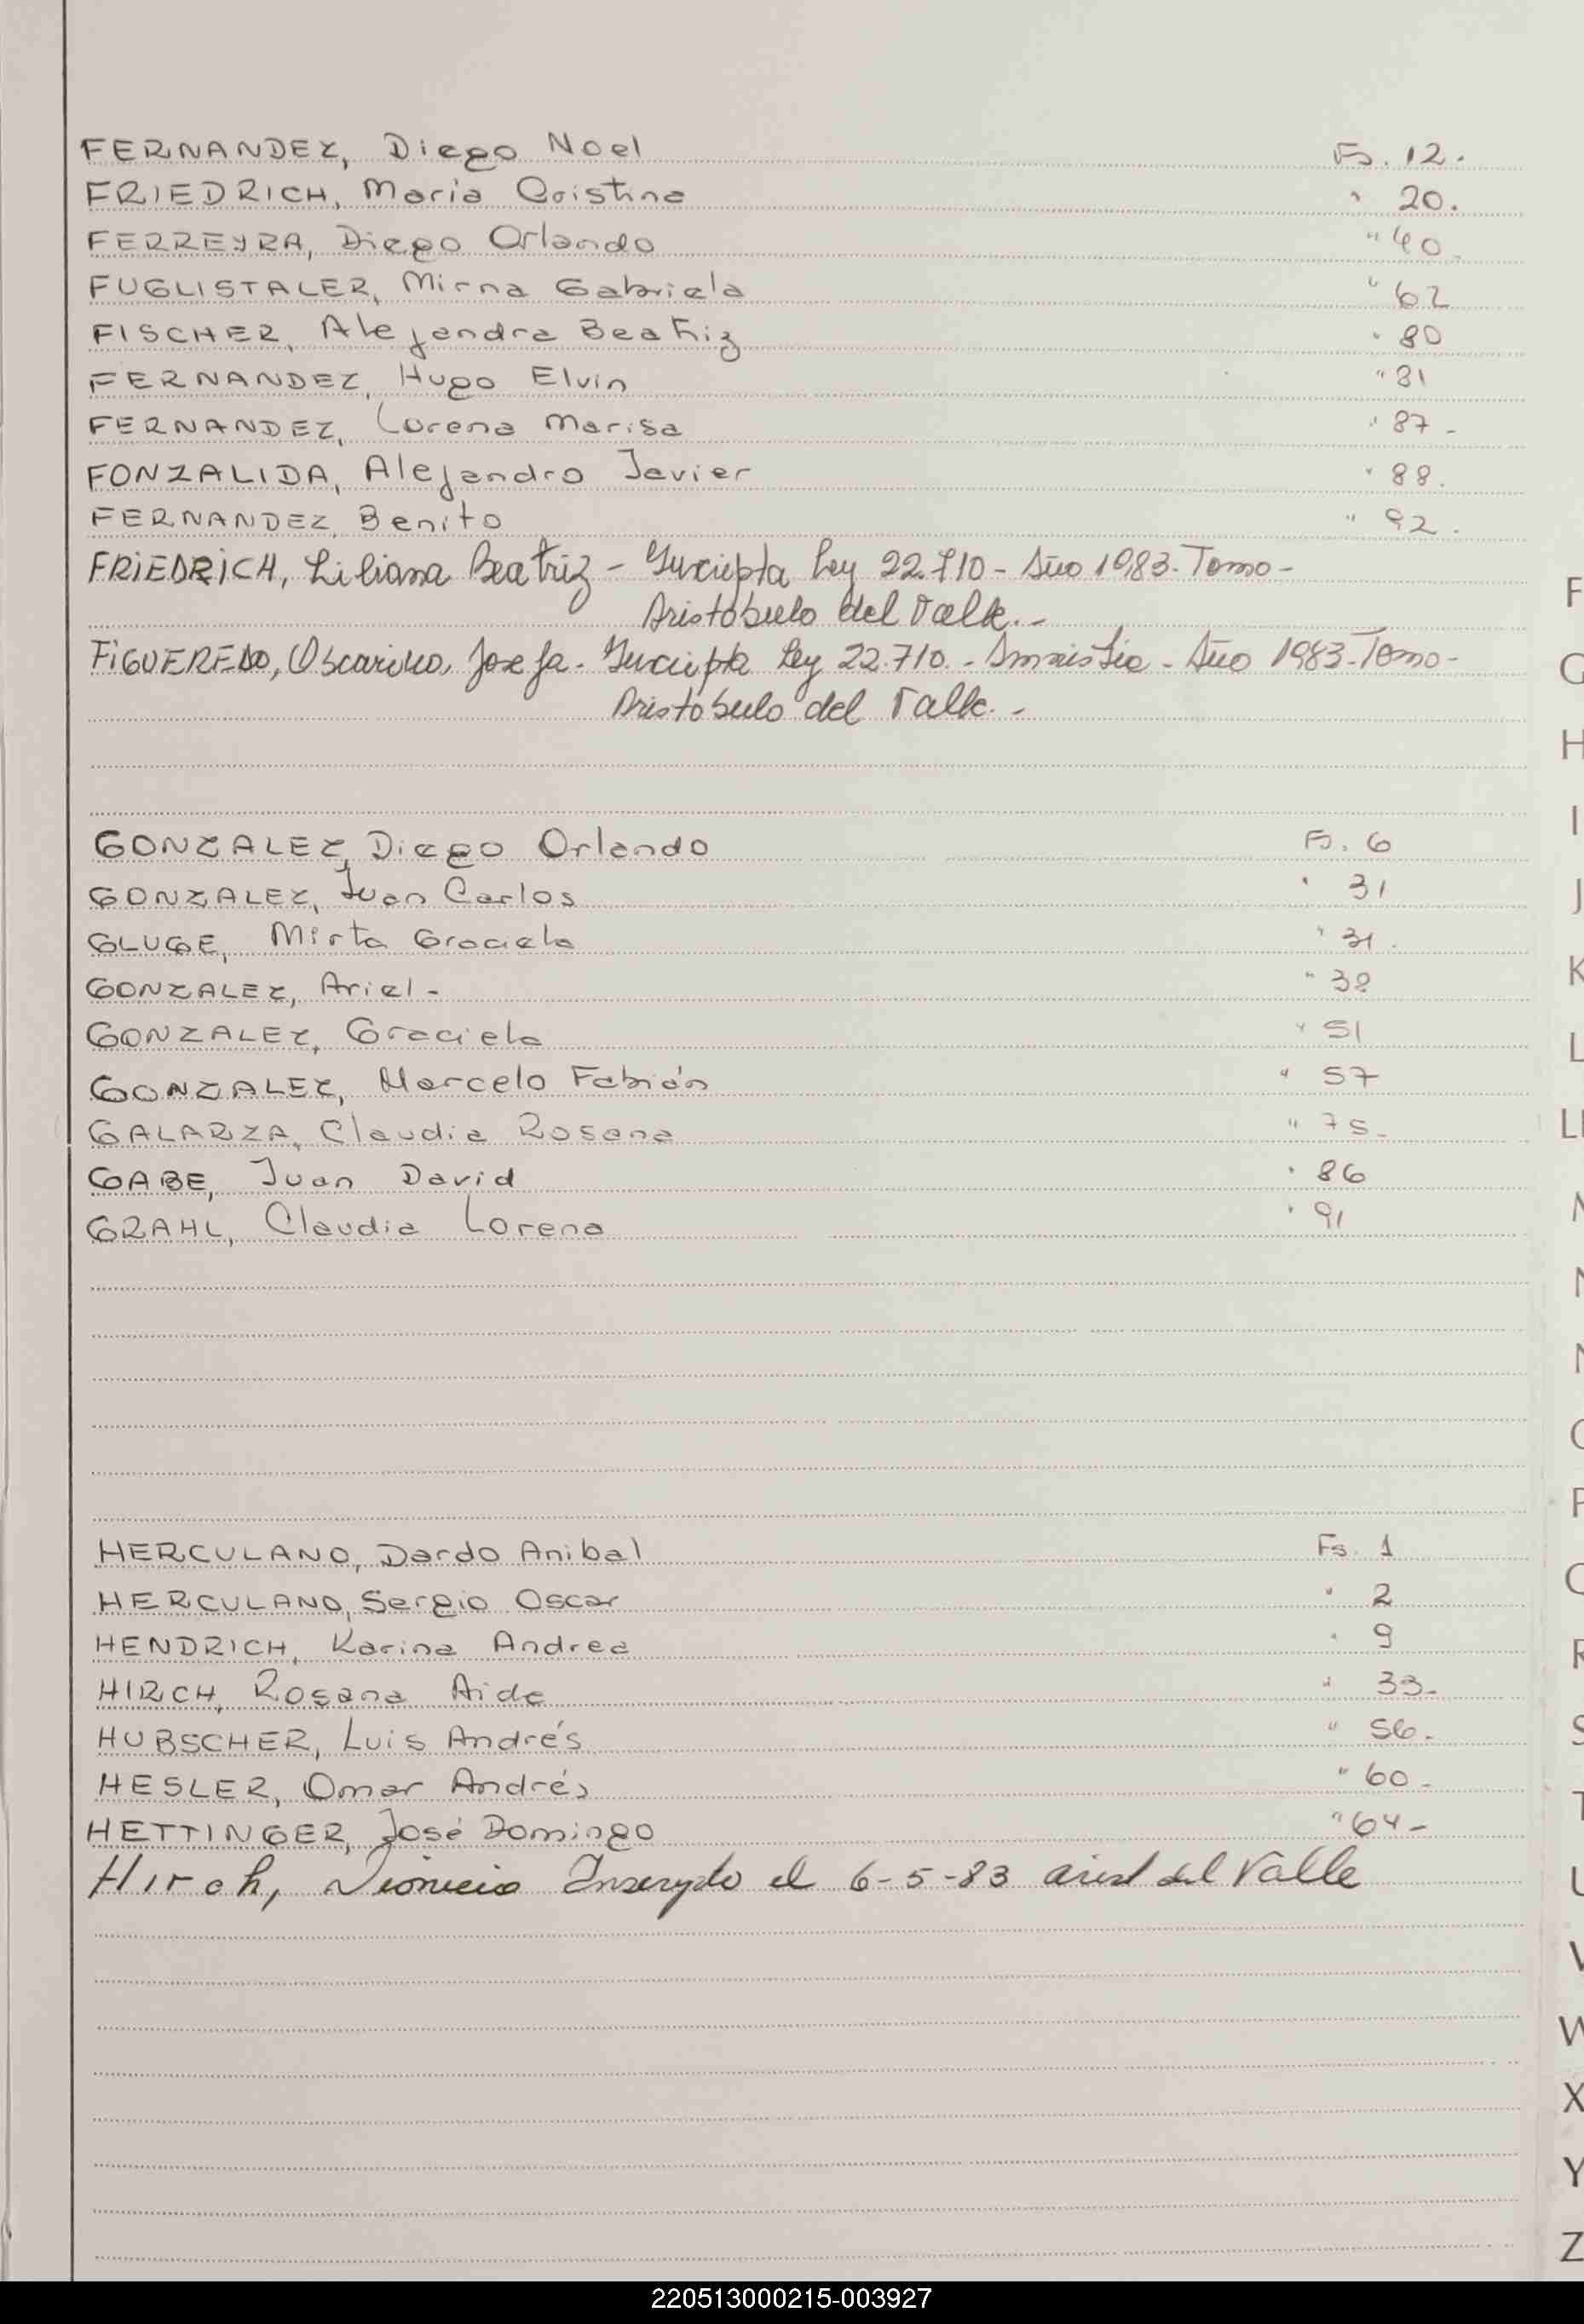 FERNANDEZ, Diego Noel Fs. 12.
FRIEDRICH, Maria Cristina " 20.
FERREYRA, Diego Orlando " 40.
FUGLISTALER, Mirna Gabriela " 62
FISCHER, Alejandra Beatriz " 80
FERNANDEZ, Hugo Elvin " 81
FERNANDEZ, Lorena Marisa " 87-
FONZALIDA, Alejandro Javier " 88.
FERNANDEZ Benito " 92.
FRIEDRICH, Liliana Beatriz - Inscripta Ley 22.710 - Año 1983. Tomo -
Aristóbulo del Valle. -
FIGUEREDO, Josefa. Inscripta Ley 22.710. - Amnistia - Año 1983. Tomo -
Aristóbulo del Valle. -
GONZALEZ, Diego Orlando Fs. 6
GONZALEZ, Juan Carlos " 31
GLUGE, Mirta Graciela " 31.
GONZALEZ, Ariel - " 38
GONZALEZ, Graciela " 51
GONZALEZ, Marcelo Fabián " 57
GALARZA, Claudia Rosana " 75-
GABE, Juan David " 86
GRAHL, Claudia Lorena " 91
HERCULANO, Dardo Anibal Fs. 1
HERCULANO, Sergio Oscar " 2
HENDRICH, Karina Andrea " 9
HIRCH, Rosana Aide " 33-
HUBSCHER, Luis Andrés " 56.
HESLER, Omar Andrés " 60-
HETTINGER, José Domingo " 64-
Hirch, Dionicio Inscripto el 6-5-83 arist del Valle
F
G
H
I
J
K
L
LL
M
N
Ñ
O
P
Q
R
S
T
U
V
W
X
Y
Z
220513000215-003927